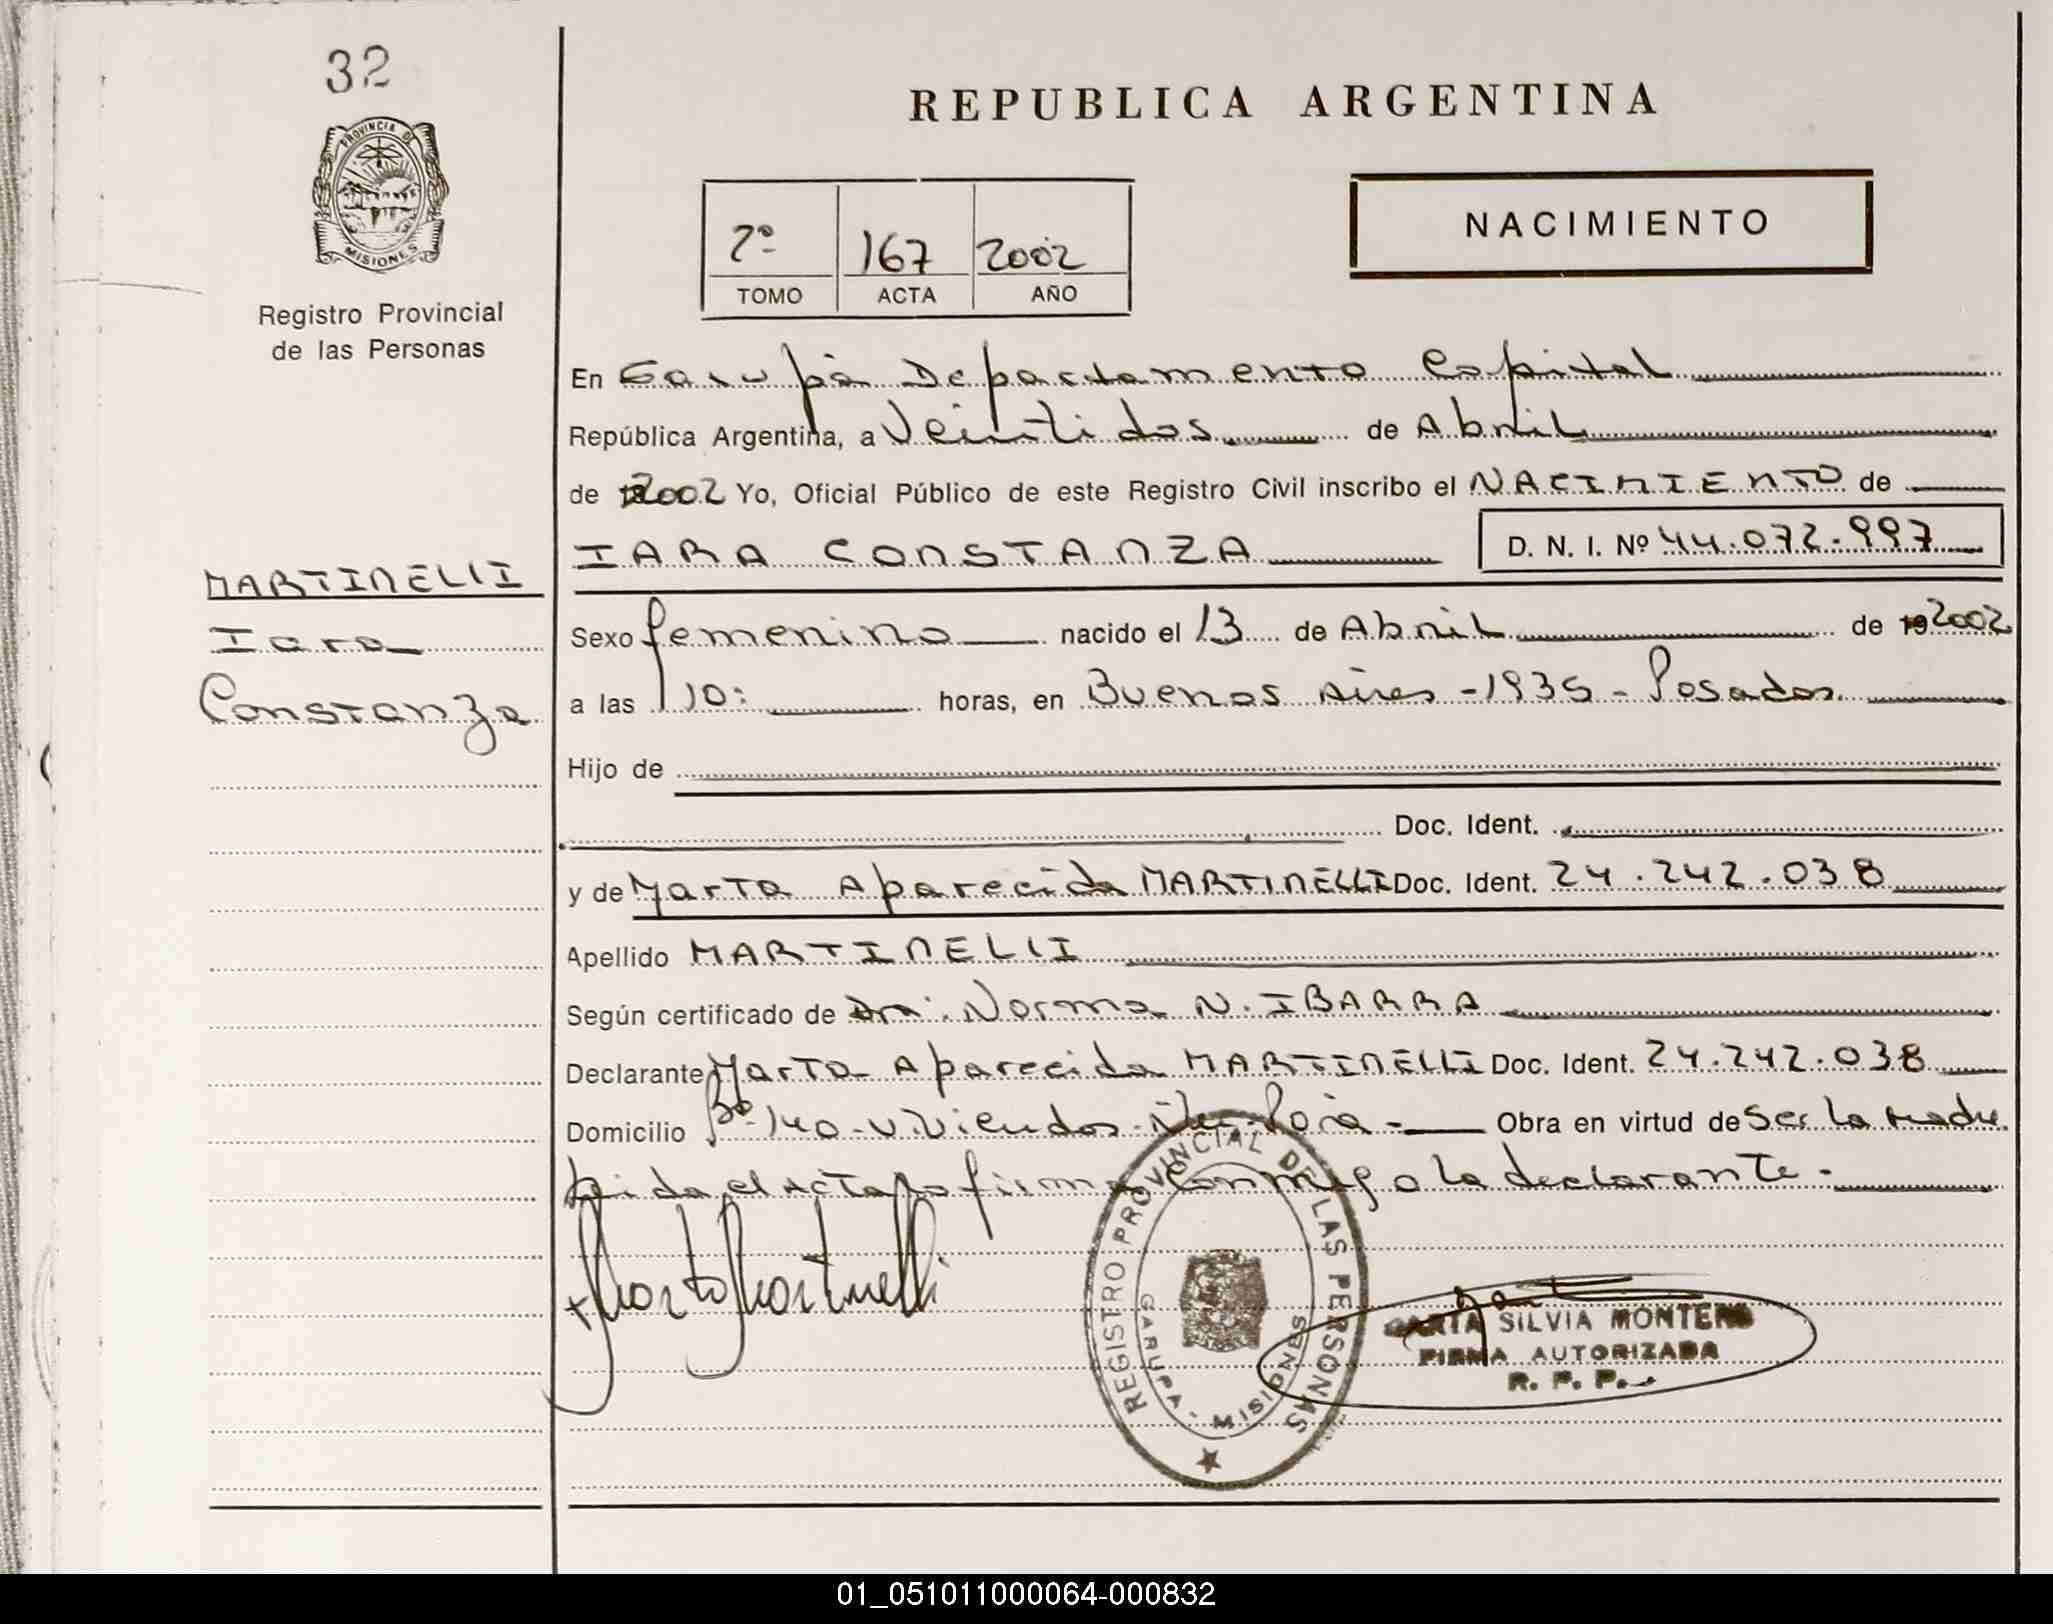 32
PROVINCIA DE
MISIONES
Registro Provincial
de las Personas
MARTINELLI
Iara
Constanza
REPUBLICA ARGENTINA
2º 167 2002
TOMO ACTA AÑO
NACIMIENTO
En Garupá Departamento Capital
República Argentina, a Veintidos de Abril
de 2002 Yo, Oficial Público de este Registro Civil inscribo el NACIMIENTO de
IARA CONSTANZA D. N. I. Nº 44.072.997
Sexo femenino nacido el 13 de Abril de 2002
a las 10: horas, en Buenos Aires - 1935 - Posadas
Hijo de
Doc. Ident.
y de Marta Aparecida MARTINELLI Doc. Ident. 24.242.038
Apellido MARTINELLI
Según certificado de Dra. Norma N. IBARRA
Declarante Marta Aparecida MARTINELLI Doc. Ident. 24.242.038
Domicilio Bº 140 - Viviendas - Obra en virtud de Ser la madre
Leida el Acta la firma Conmigo la declarante -
Marta Martinelli
REGISTRO PROVINCIAL DE LAS PERSONAS
GARUPA - MISIONES
SILVIA MONTERO
FIRMA AUTORIZADA
R. P. P.
01_051011000064-000832